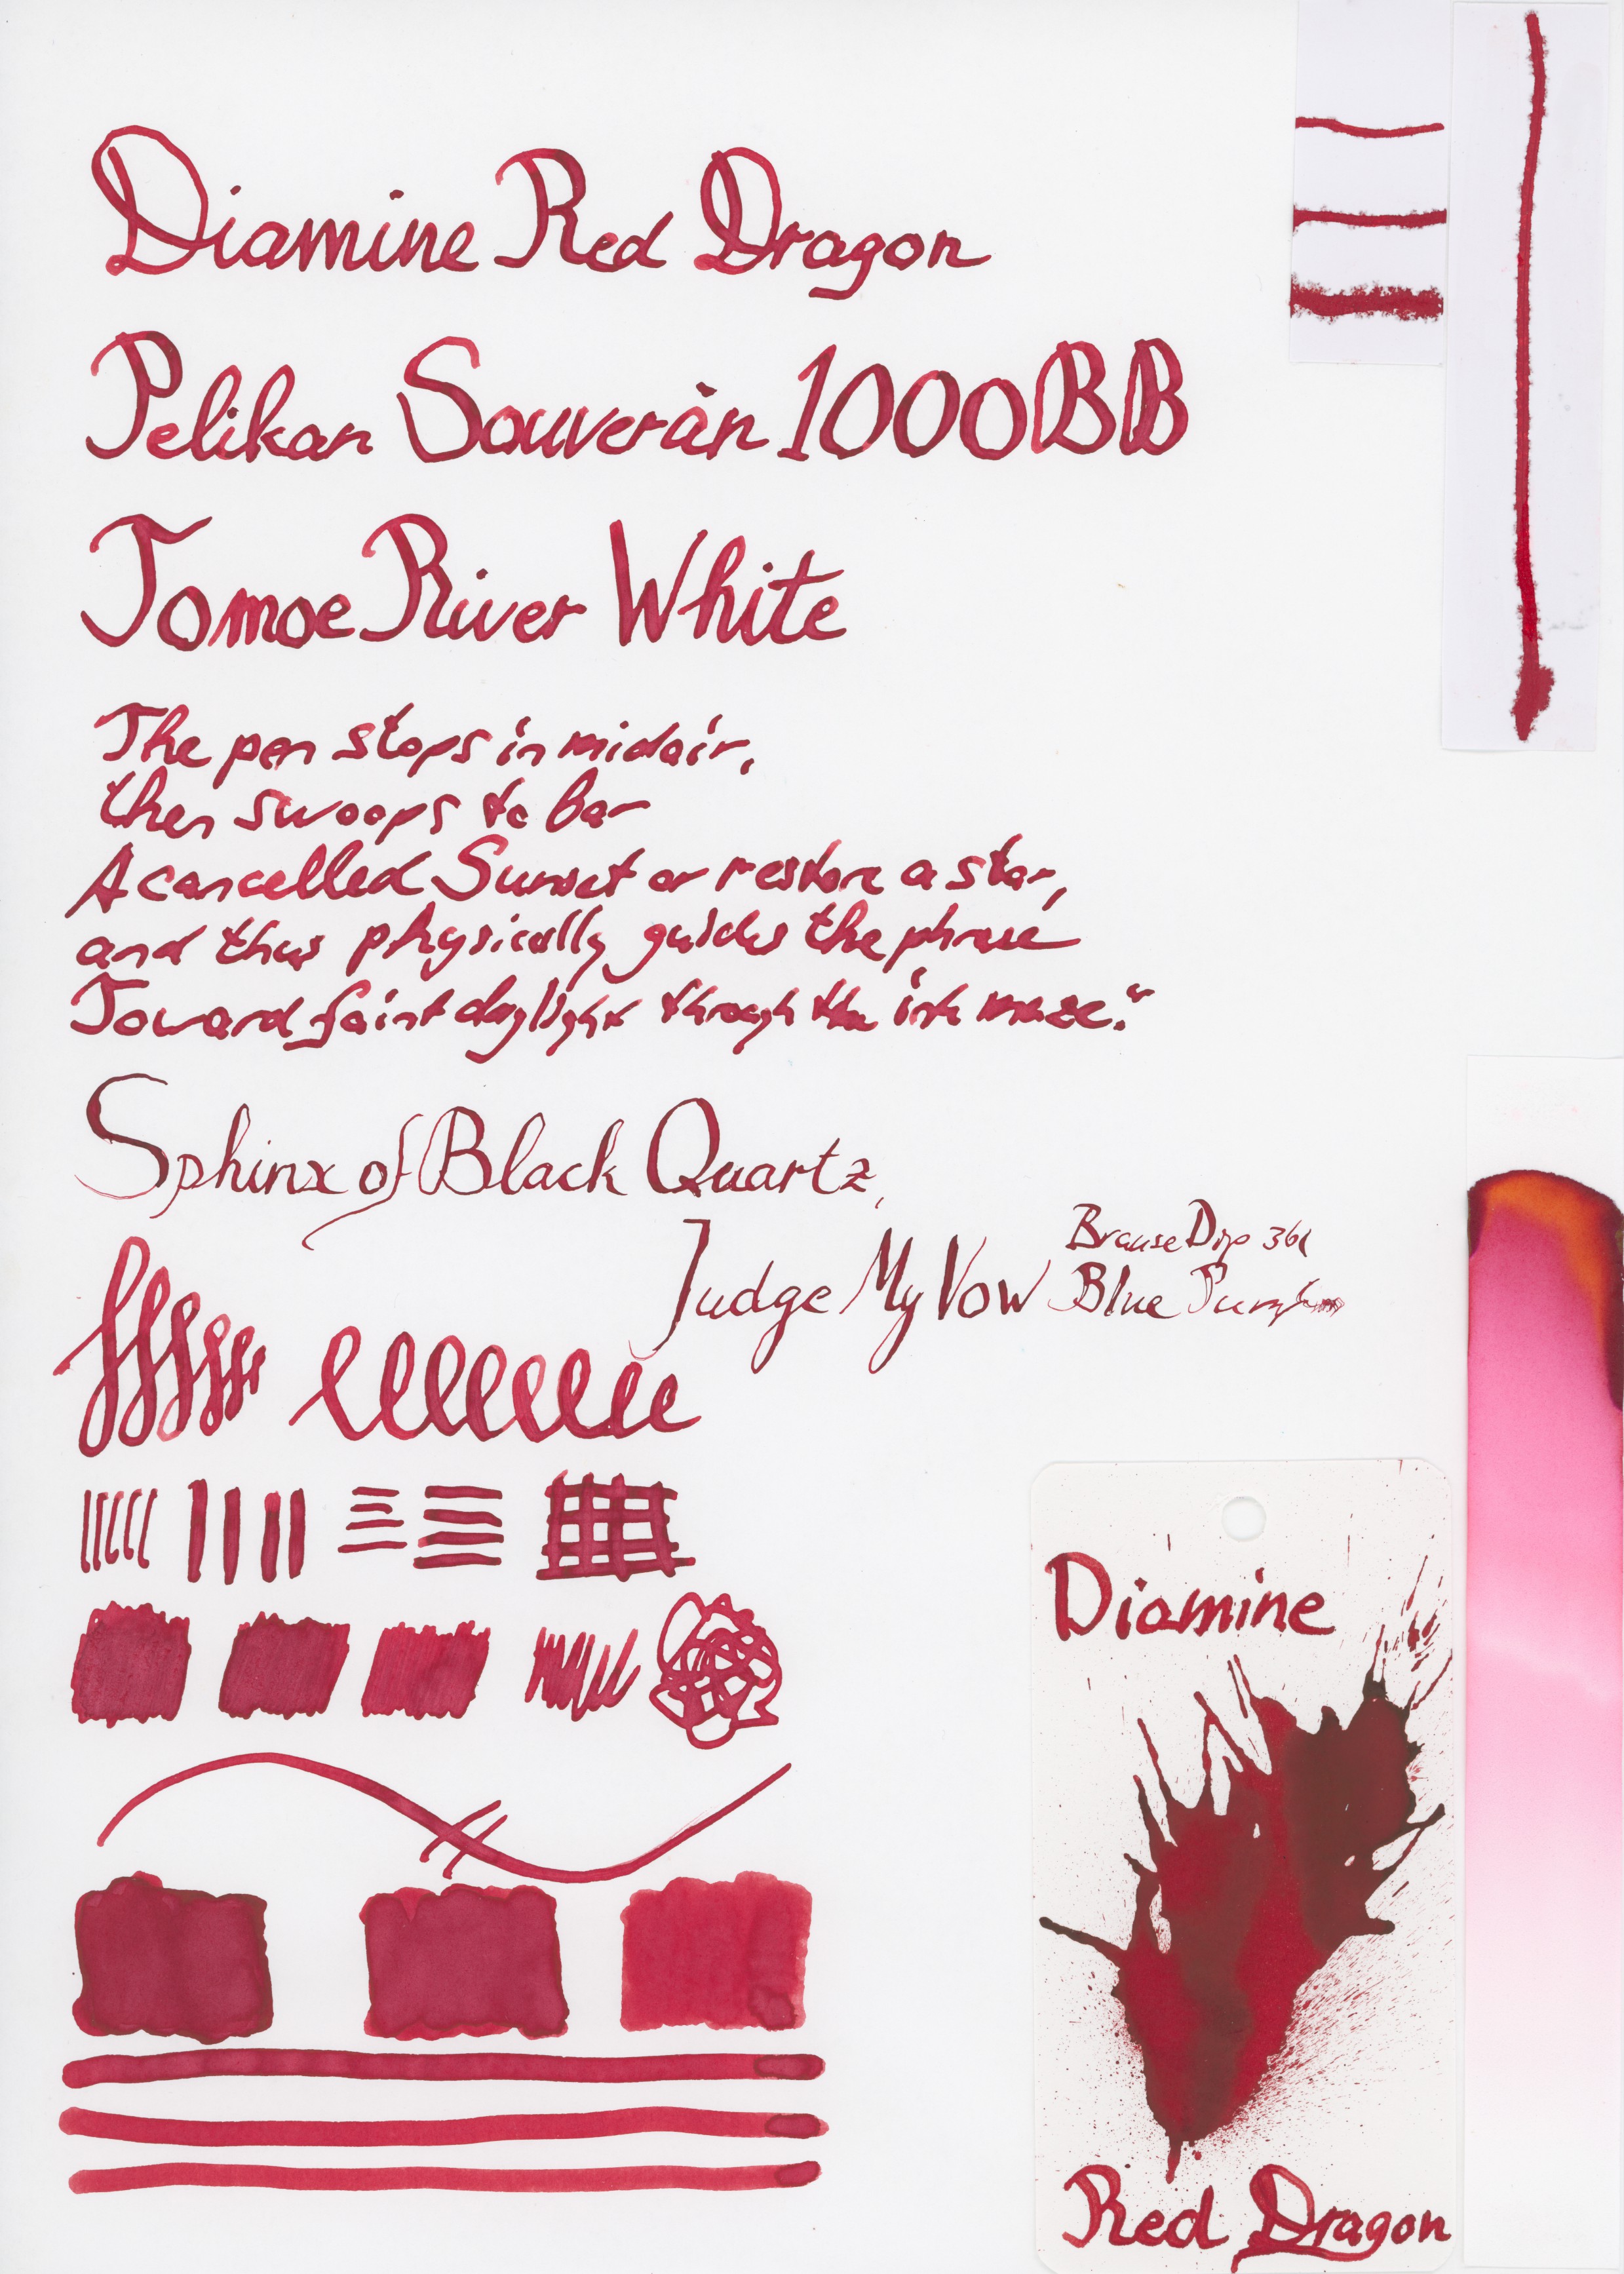 Diamine Red Dragon
Pelikan Souverän 1000BB
Tomoe River White
The pen stops in midair,
then swoops to bar
A cancelled Sunset or restore a star,
and thus physically guides the phrase
Toward faint daylight through the ink maze."
Sphinx of Black Quartz,
Judge My Vow
Brause Dip 361
Blue Pumpkin
Diamine
Red Dragon